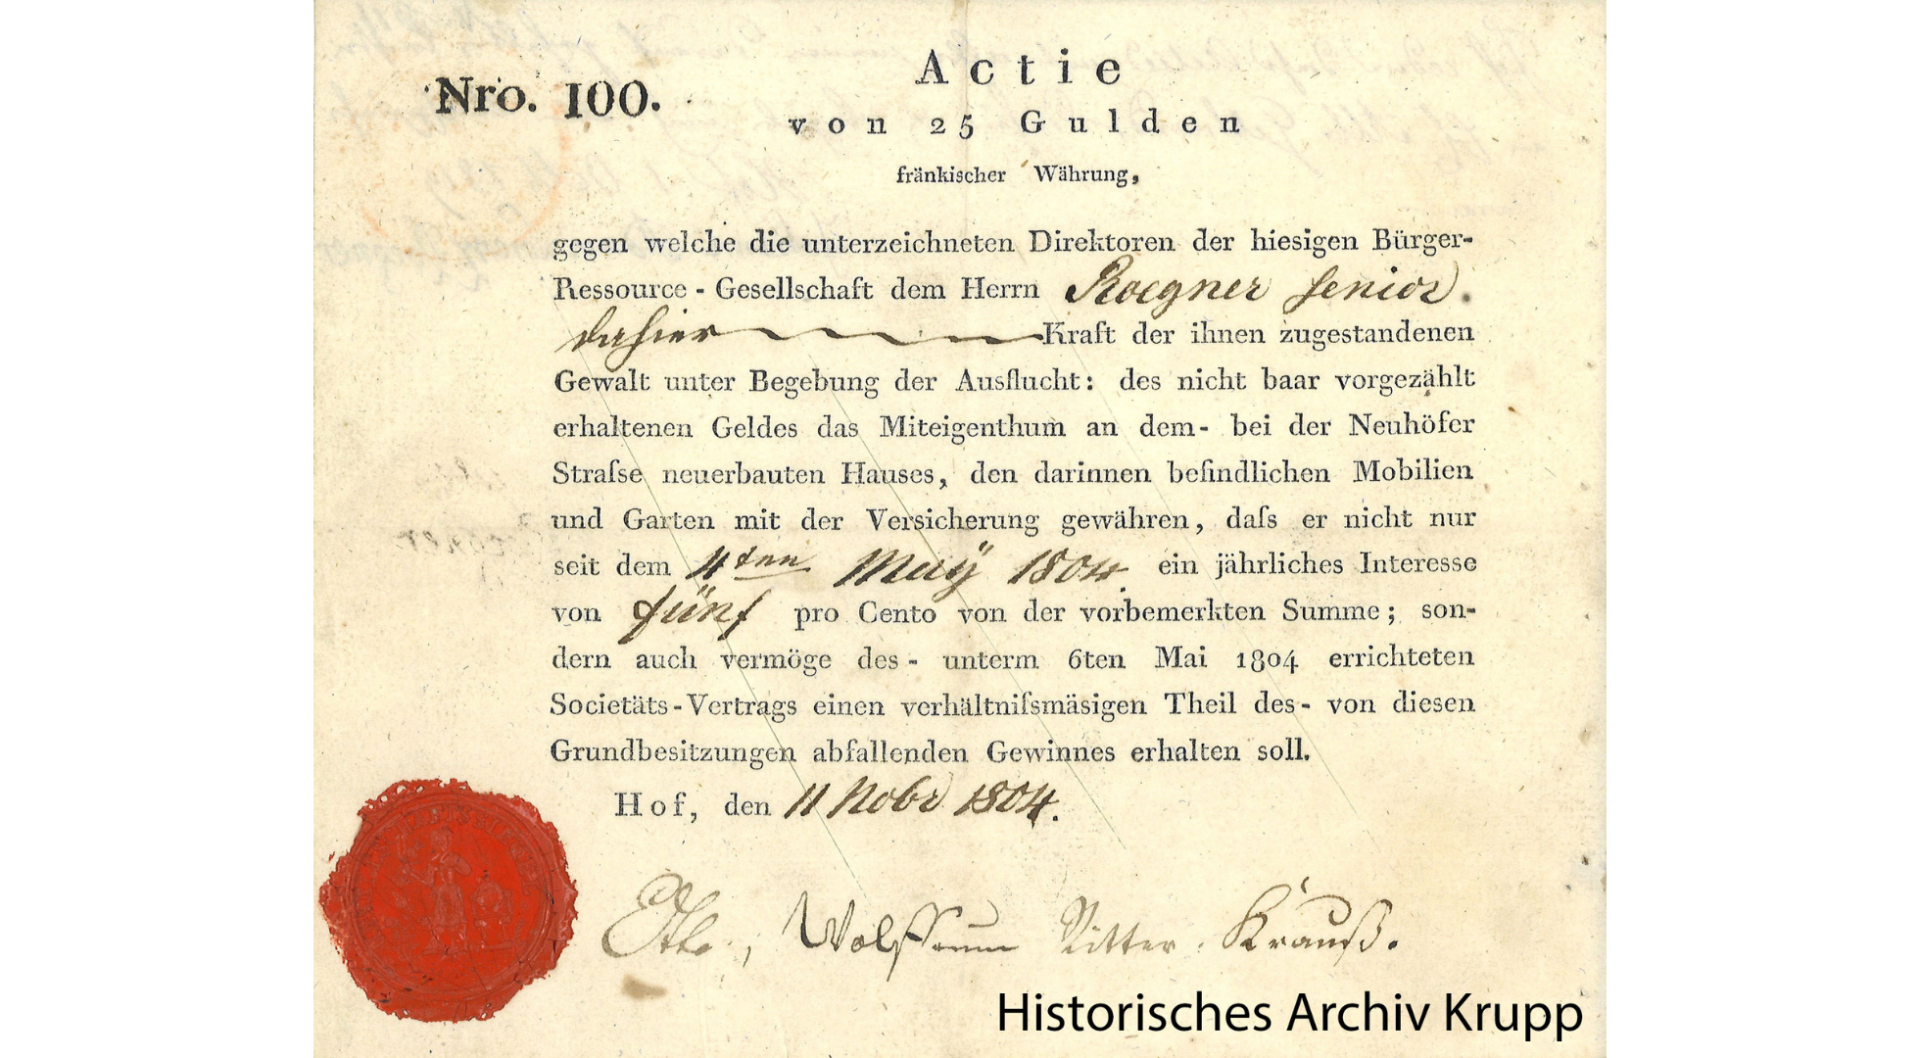 Nro. 100.
Actie
von 25 Gulden
fränkischer Währung,
gegen welche die unterzeichneten Direktoren der hiesigen Bürger-
Ressource - Gesellschaft dem Herrn Roegner senior
dahier Kraft der ihnen zugestandenen
Gewalt unter Begebung der Ausflucht: des nicht baar vorgezählt
erhaltenen Geldes das Miteigenthum an dem- bei der Neuhöfer
Straſse neuerbauten Hauses, den darinnen befindlichen Mobilien
und Garten mit der Versicherung gewähren, daſs er nicht nur
seit dem 4ten Maÿ 1804. ein jährliches Interesse
von fünf pro Cento von der vorbemerkten Summe; son-
dern auch vermöge des- unterm 6ten Mai 1804 errichteten
Societäts-Vertrags einen verhältniſsmäsigen Theil des- von diesen
Grundbesitzungen abfallenden Gewinnes erhalten soll.
Hof, den 11 Nobr 1804.
Wolffrum Ritter. Krauß.
Historisches Archiv Krupp